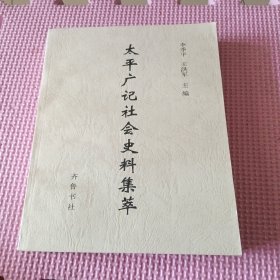 太平广记社会史料集萃
李季平 王洪军 主编
齐鲁书社